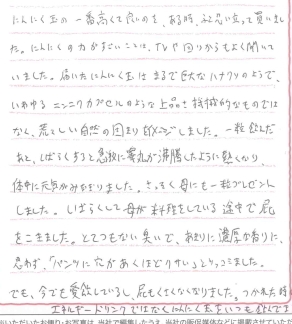 にんにく玉の一番高くて良いのを、ある時、ふと思い立って買いまし
た。にんにくの力がすごいことは、TVや回りからもよく聞いて
いました。届いたにんにく玉はまるで巨大なハナクソのようで、
いわゆるニンニクカプセルのような上品さ機械的なものでは
なく、荒々しい自然の固まりをイメージしました。一粒飲んだ
あと、しばらくすると急激に睾丸が沸騰したように熱くなり、
体中に元気がみなぎりました。さっそく母にも一粒プレゼント
しました。しばらくして母が料理をしている途中で屁
をこきました。とてつもない臭いで、あまりに濃厚な香りに、
思わず、「パンツに穴があくほどクサい」とツッコミました。
でも、今でも愛飲しているし、屁もくさくなくなりました。つかれた時は
エネルギードリンクではなくにんにく玉をいつも飲んでま
いただいたお便り・お写真は、当社で編集したうえ、当社の販促媒体などに掲載させていただ